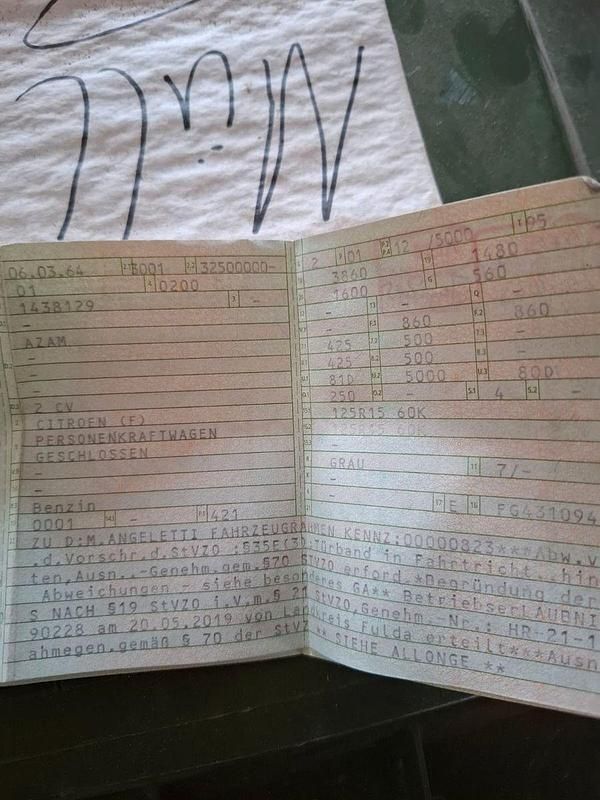 Müll
06.03.64 2.1 3001 2.2 32500000-
01 4 0200
1438129 3 -
-
AZAM
-
-
-
2 CV
CITROEN (F)
PERSONENKRAFTWAGEN
GESCHLOSSEN
-
-
Benzin
0001 14.1 - P.1 421
2 9 01 P.2 P.4 12 /5000 T 95
3860 19 1480
1600 G 560
- 13 - Q -
- F.1 860 F.2 860
425 7.1 500 7.3 -
425 8.2 500 8.3 -
81D U.2 5000 U.3 80D
250 O.2 - S.1 4 S.2 -
125R15 60K
125R15 60K
-
GRAU 11 7/-
-
- 17 E 16 FG431094
ZU D:M.ANGELETTI FAHRZEUGRAHMEN KENNZ:00000823***Abw.v
.d.Vorschr.d.StVZO :§35E(3):Türband in Fahrtricht. hin
ten,Ausn..-Genehm.gem.§70 StVZO erford.*Begründung der
Abweichungen - siehe besonderes GA** BetriebserLAUBNI
S NACH §19 StVZO i.V.m.§ 21 StVZO,Genehm.-Nr.: HR-21-1
90228 am 20.05.2019 von Landkreis Fulda erteilt***Ausn
ahmegen.gemäß § 70 der StVZ** SIEHE ALLONGE **